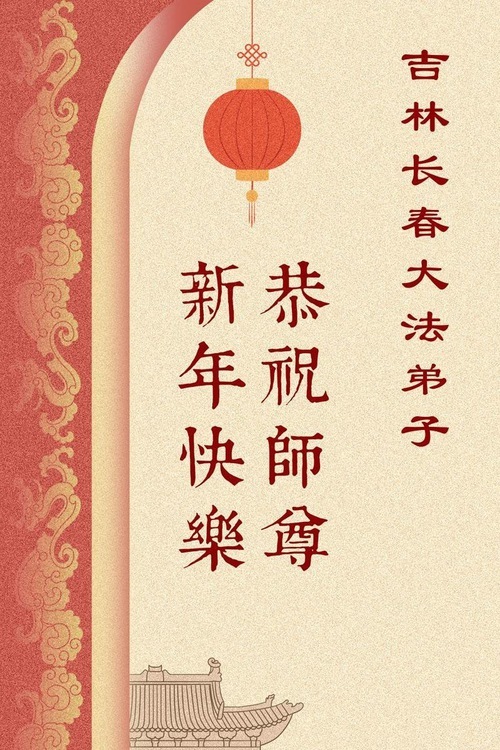 吉林长春大法弟子
恭祝師尊
新年快樂